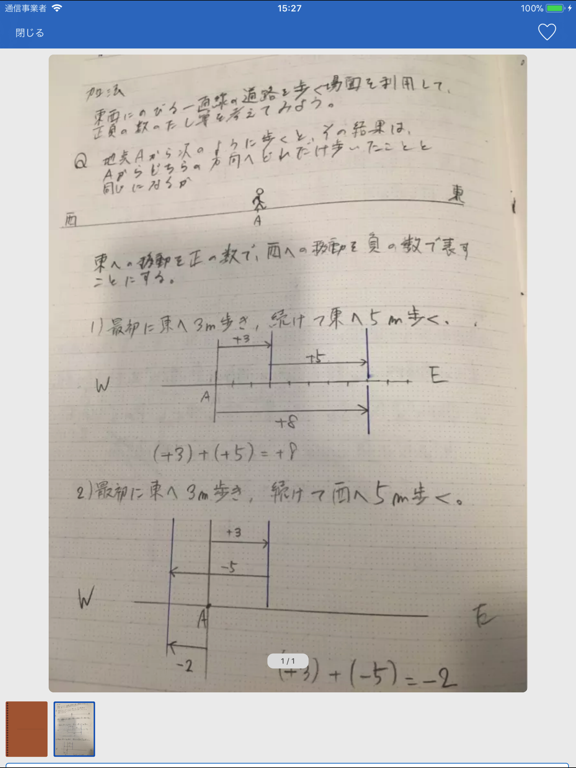 通信事業者 15:27 100%
閉じる
加法
東西にのびる一直線の道路を歩く場面を利用して、
正負の数のたし算を考えてみよう。
Q 地点Aから次のように歩くと、その結果は、
Aからどちらの方向へどれだけ歩いたことと
同じになるか
西 A 東
東への移動を正の数で、西への移動を負の数で表す
ことにする。
1) 最初に東へ3m歩き、続けて東へ5m歩く。
+3
+5
W A E
+8
(+3)+(+5)=+8
2) 最初に東へ3m歩き、続けて西へ5m歩く。
+3
-5
W A E
-2
1/1
(+3)+(-5)=-2